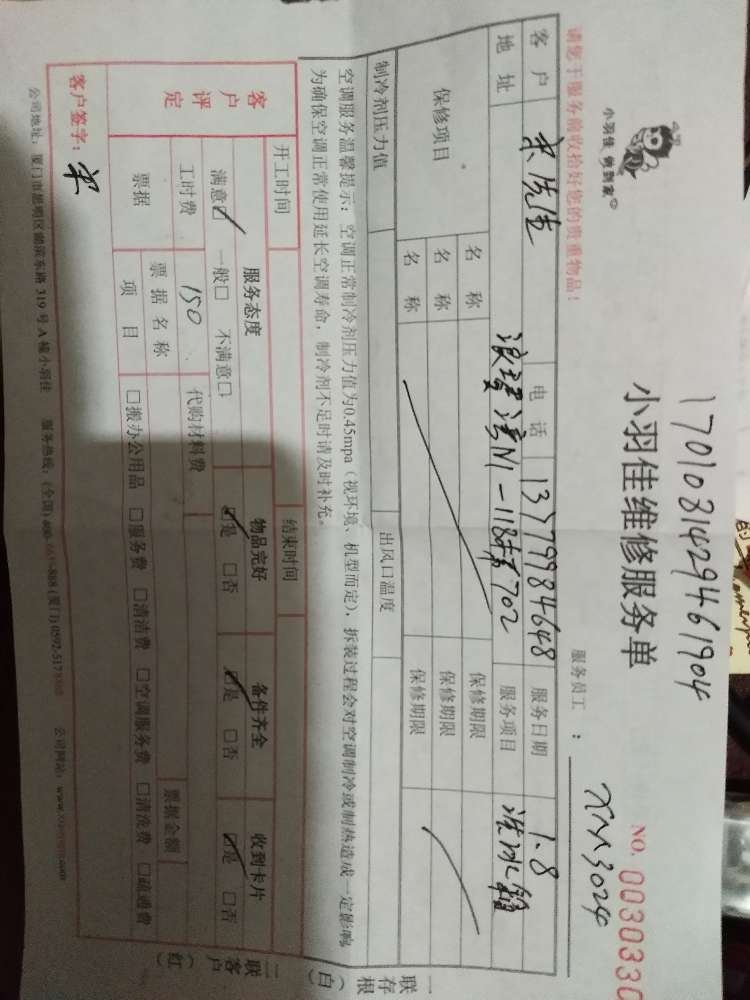 1701081429461904
小羽佳 俩到家
小羽佳维修服务单
NO. 0030330
请您于服务前收拾好您的贵重物品!
服务员工： XM3024
客户 宋先生 电话 13779984648 服务日期 1.8
地址 N1-118 702 服务项目 洗冰箱
保修项目 名称 保修期限
名称 保修期限
名称 保修期限
制冷剂压力值 出风口温度
空调服务温馨提示：空调正常制冷剂压力值为0.45mpa（视环境、机型而定），拆装过程会对空调制冷或制热造成一定影响
为确保空调正常使用延长空调寿命，制冷剂不足时请及时补充。
开工时间 结束时间
客户评定 服务态度 物品完好 备件齐全 收到卡片
满意☑ 一般□ 不满意□ ☑是 □否 ☑是 □否 ☑是 □否
工时费 150 代购材料费
票据 票据名称 票据金额
项目 □搬办公用品 □服务费 □清洁费 □空调服务费 □清洗费 □疏通费
客户签字： 宋
公司地址：厦门市思明区 东路319号A幢小羽佳 服务热线：(全国) (厦门) 公司网站：
一存根(白)
二客户(红)
联